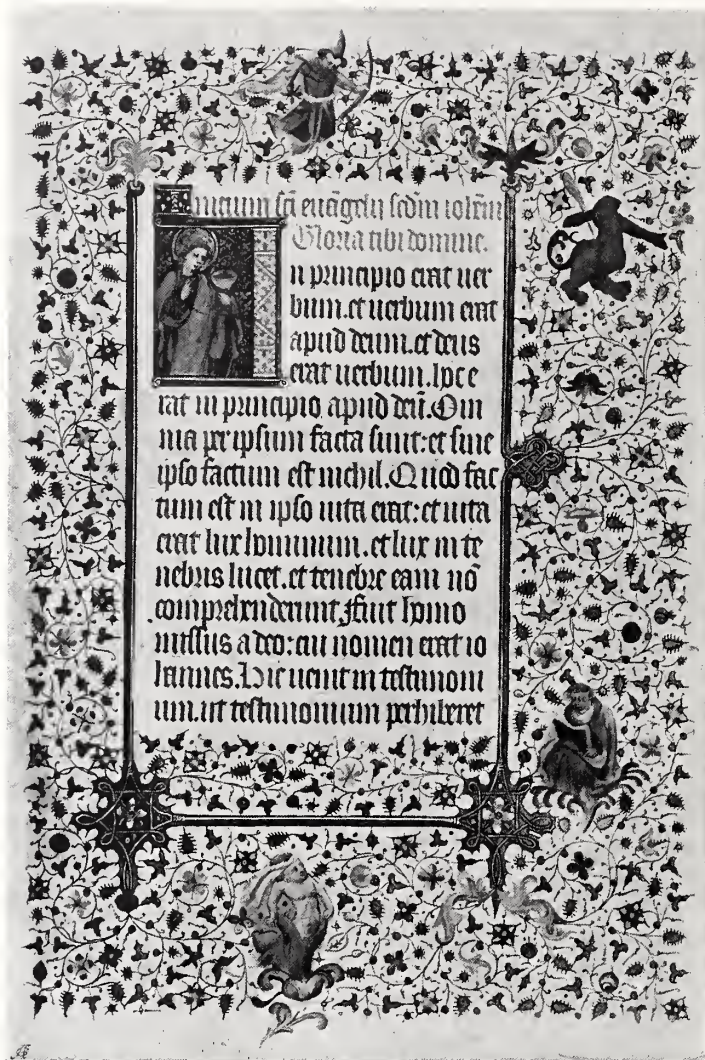 Inicium sc̄i euāgelij scd̄m ioh̄em
Gloria tibi domine.
n principio erat uer
bum. et uerbum erat
apud deum. et deus
erat uerbum. hoc e
rat in principio apud deū. Om
nia per ipsum facta sunt: et sine
ipso factum est nichil. Quod fac
tum est in ipso uita erat: et uita
erat lux hominum. et lux in te
nebris lucet. et tenebre eam nō
comprehenderunt Fuit homo
missus a deo: cui nomen erat io
hannes. Hic uenit in testimoni
um. ut testimonium perhiberet